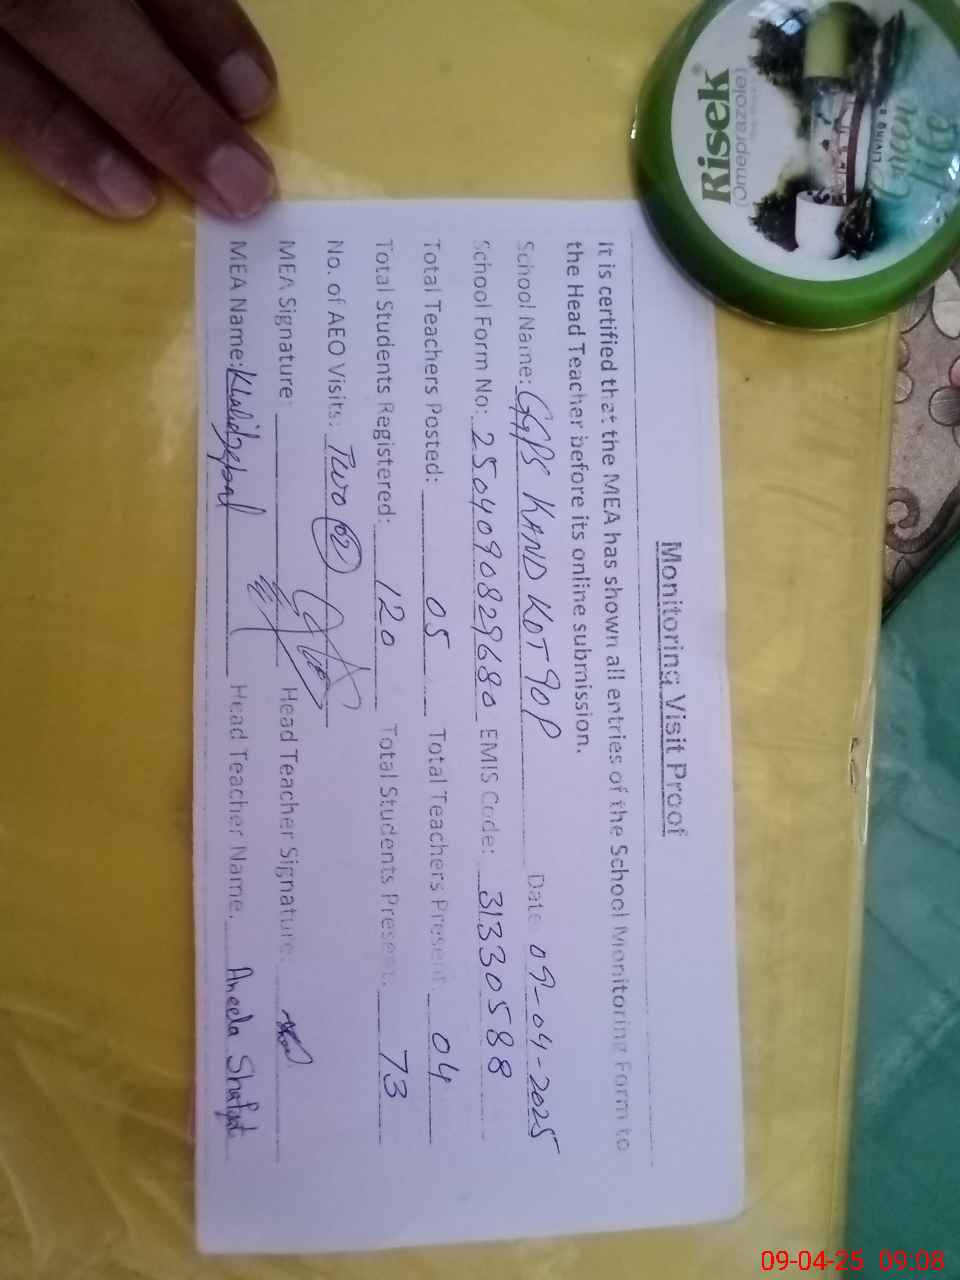 Monitoring Visit Proof
It is certified that the MEA has shown all entries of the School Monitoring Form to
the Head Teacher before its online submission.
School Name: GGPS KAND KOT 90P Date: 09-04-2025
School Form No: 2504090829680 EMIS Code: 31330588
Total Teachers Posted: 05 Total Teachers Present 04
Total Students Registered: 120 Total Students Present: 73
No. of AEO Visits: Two 02
MEA Signature: Head Teacher Signature:
MEA Name: Khalid Iqbal Head Teacher Name. Aneela Shafqat
Risek
(Omeprazole)
09-04-25 09:08